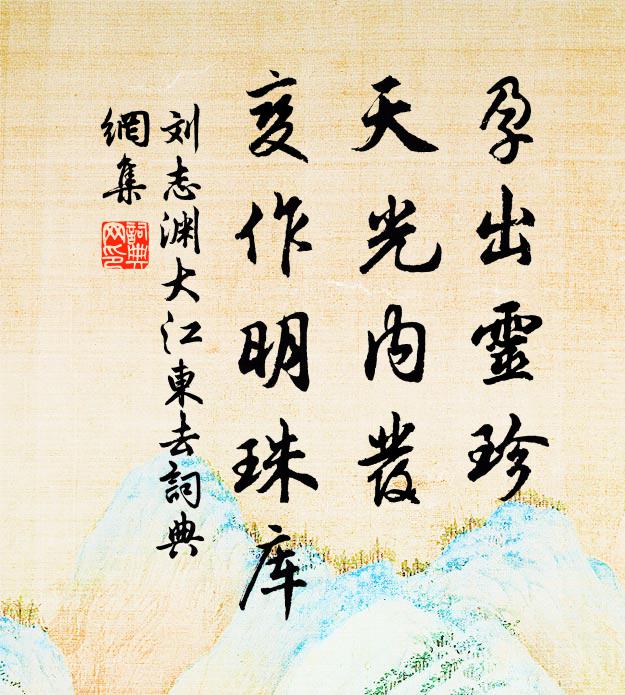 孕出靈珍
天光内發
变作明珠库
刘志渊大江東去詞典
網集
詞典
网印